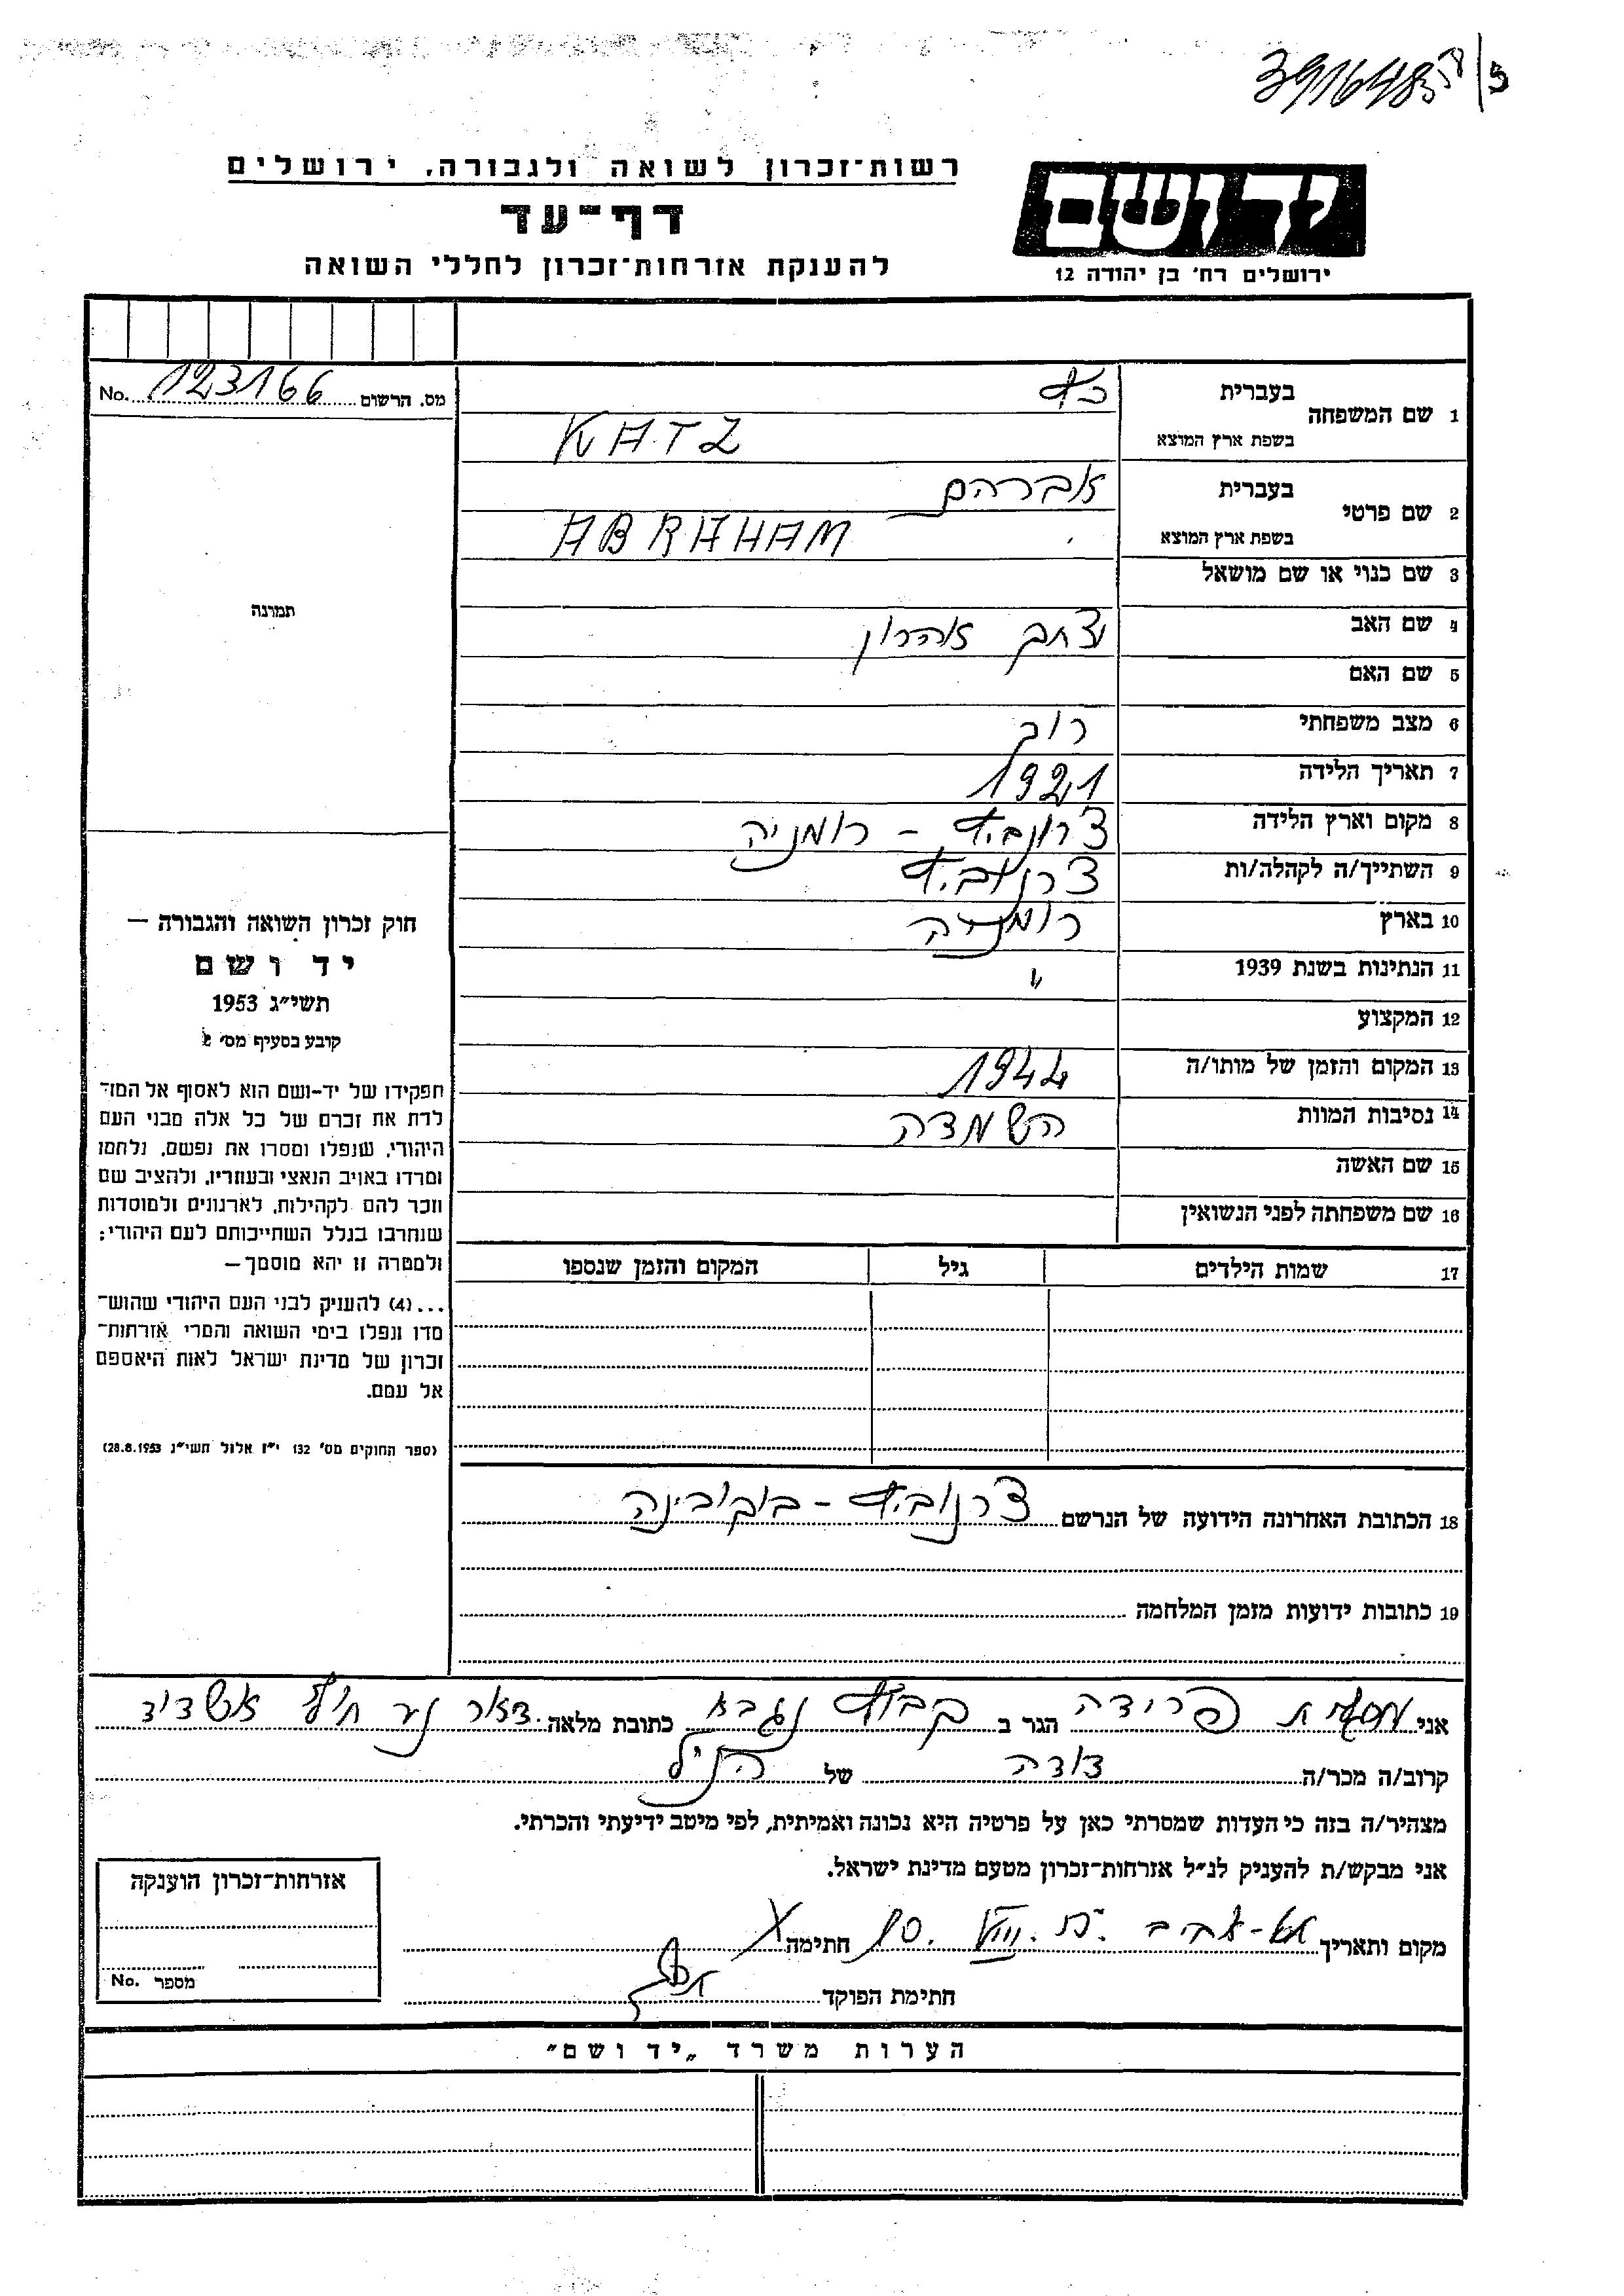 3916485
רשות־זכרון לשואה ולגבורה, ירושלים
דף־עד
להענקת אזרחות־זכרון לחללי השואה
יד ושם
ירושלים רח׳ בן יהודה 12
מס. הרשום 123166 No.
1 שם המשפחה
בעברית כץ
בשפת ארץ המוצא KATZ
2 שם פרטי
בעברית אברהם
בשפת ארץ המוצא ABRAHAM
3 שם כנוי או שם מושאל
תמונה
4 שם האב יצחק אהרון
5 שם האם
6 מצב משפחתי רוק
7 תאריך הלידה 1921
8 מקום וארץ הלידה צרנוביץ - רומניה
9 השתייך/ה לקהלה/ות צרנוביץ
10 בארץ רומניה
11 הנתינות בשנת 1939 "
12 המקצוע
13 המקום והזמן של מותו/ה 1944
14 נסיבות המוות השמדה
15 שם האשה
16 שם משפחתה לפני הנשואין
17 שמות הילדים גיל המקום והזמן שנספו
חוק זכרון השואה והגבורה —
יד ושם
תשי״ג 1953
קובע בסעיף מס׳ 2
תפקידו של יד-ושם הוא לאסוף אל המו־
לדת את זכרם של כל אלה מבני העם
היהודי, שנפלו ומסרו את נפשם, נלחמו
ומרדו באויב הנאצי ובעוזריו, ולהציב שם
וזכר להם לקהילות, לארגונים ולמוסדות
שנחרבו בגלל השתייכותם לעם היהודי;
ולמטרה זו יהא מוסמך —
...(4) להעניק לבני העם היהודי שהוש־
מדו ונפלו בימי השואה והמרי אזרחות־
זכרון של מדינת ישראל לאות היאספם
אל עמם.
(ספר החוקים מס׳ 132 י״ז אלול תשי״ג 28.8.1953)
18 הכתובת האחרונה הידועה של הנרשם צרנוביץ - בוקובינה
19 כתובות ידועות מזמן המלחמה
אני פרידה הגר ב קבוץ נגבא כתובת מלאה דאר נע חוף אשדוד
קרוב/ה מכר/ה דודה של הנ״ל
מצהיר/ה בזה כי העדות שמסרתי כאן על פרטיה היא נכונה ואמיתית, לפי מיטב ידיעתי והכרתי.
אני מבקש/ת להעניק לנ״ל אזרחות־זכרון מטעם מדינת ישראל.
מקום ותאריך תל-אביב חתימה X
חתימת הפוקד
אזרחות־זכרון הוענקה
מספר No.
הערות משרד „יד ושם״